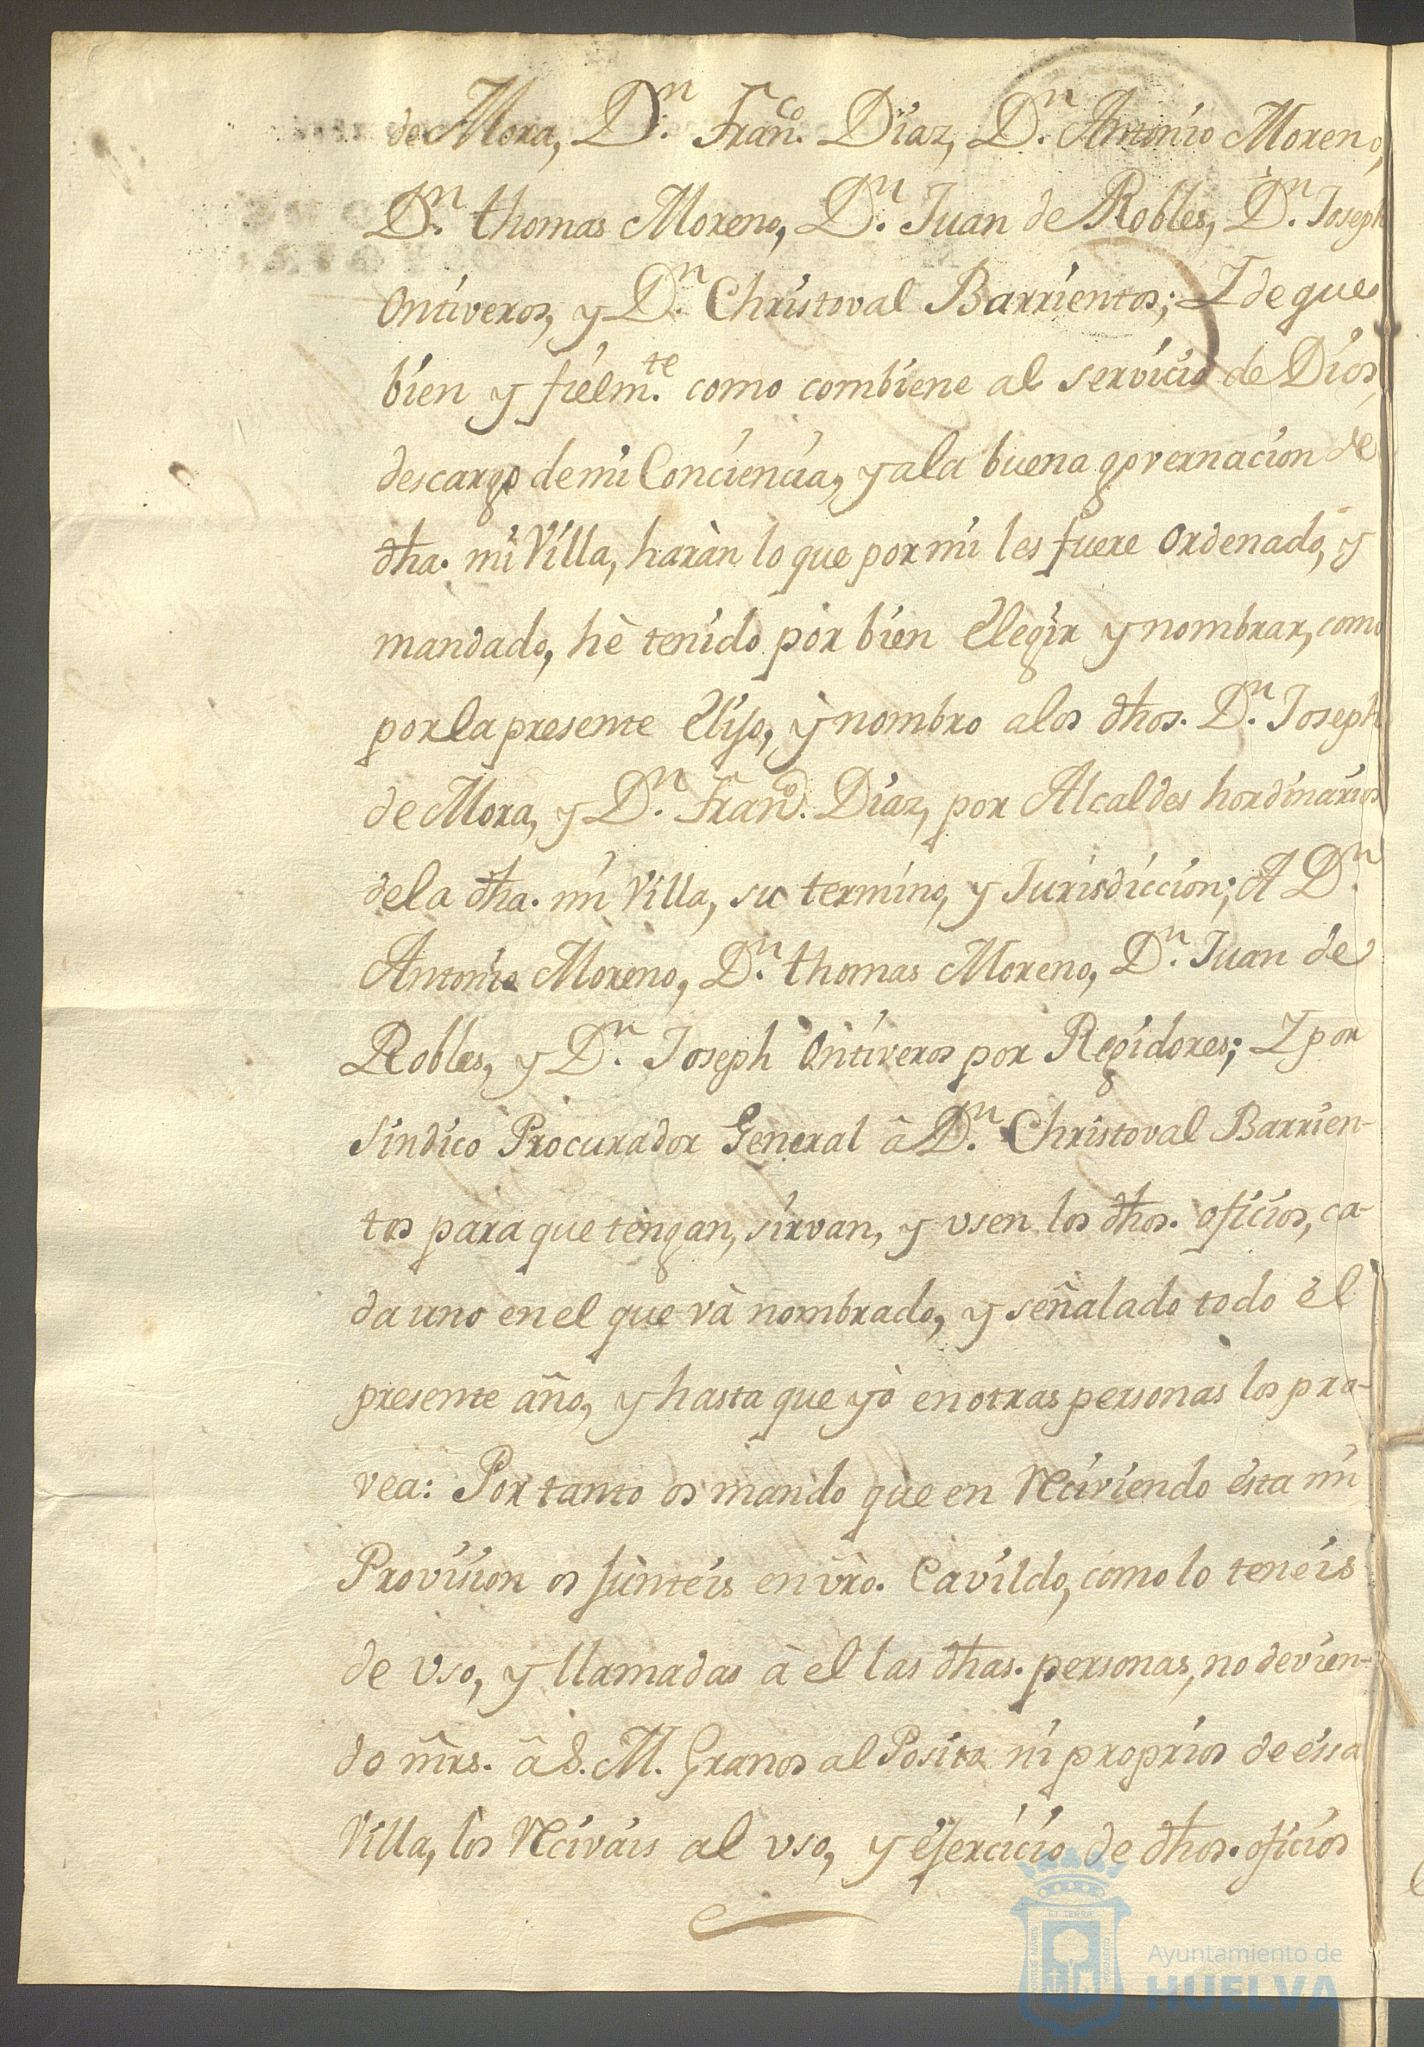 de Mora, Dn. Franco. Diaz, Dn. Antonio Moreno,
Dn. thomas Moreno, Dn. Juan de Robles, Dn. Joseph
Ontiveros, y Dn. Christoval Barrientos; Y de que
bien y fielmte. como combiene al servicio de Dios,
descargo de mi Conciencia, y a la buena governacion de
dha. mi Villa, haràn lo que por mi les fuere ordenado, y
mandado, hè tenido por bien Elegir y nombrar, como
por la presente Elijo, ÿ nombro a los dhos. Dn. Joseph
de Mora, y Dn. Franco. Diaz, por Alcaldes hordinarios
de la dha. mi Villa, su termino, y Jurisdiccion; A Dn.
Antonio Moreno, Dn. thomas Moreno, Dn. Juan de
Robles, y Dn. Joseph Ontiveros por Regidores; Y por
Sindico Procurador General â Dn. Christoval Barrien-
tos para que tengan, sirvan, y usen los dhos. oficios, ca-
da uno en el que và nombrado, y señalado todo èl
presente año, y hasta que yò en otras personas los pro-
vea: Por tanto os mando que en Reciviendo èsta mi
Provision os junteis en vro. Cavildo, como lo teneis
de uso, y llamadas à el las dhas. personas, no devien-
do mrs. â S. M. Granos al Posito ni proprios de èssa
Villa, los Recivais al uso, y èjercicio de dhos. oficios
Ayuntamiento de
HUELVA